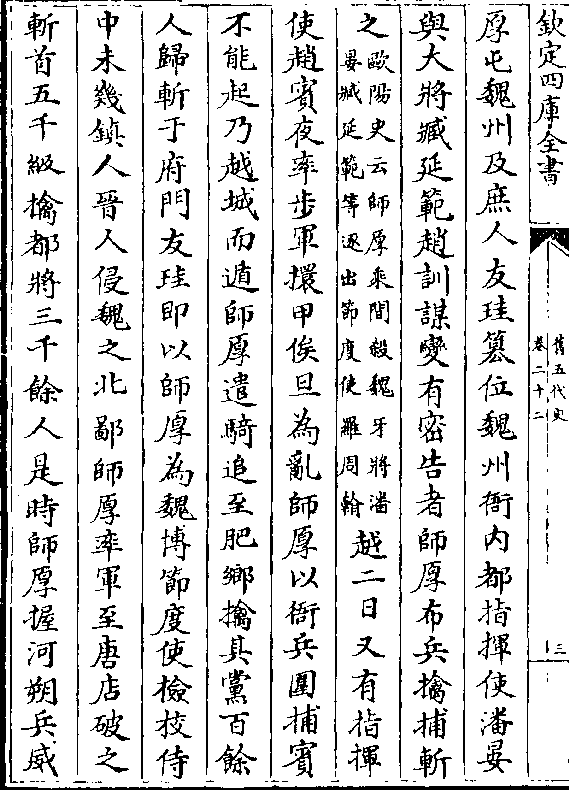 欽定四庫全書
舊五代史
卷二十二
三
厚屯魏州及庶人友珪簒位魏州衙内都指揮使潘晏
與大將臧延範趙訓謀變有密告者師厚布兵擒捕斬
之
歐陽史云師厚乘間殺魏牙將潘
晏臧延範等逐出節度使羅周翰
越二日又有指揮
使趙賓夜率步軍擐甲俟旦為亂師厚以衙兵圍捕賓
不能起乃越城而遁師厚遣騎追至肥鄉擒其黨百餘
人歸斬于府門友珪即以師厚為魏博節度使檢校侍
中未幾鎮人晉人侵魏之北鄙師厚率軍至唐店破之
斬首五千級擒都將三千餘人是時師厚握河朔兵威